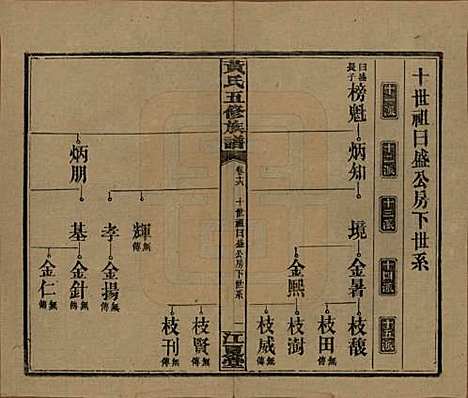 十世祖日盛公房下世系
十一派
十二派
十三派
十四派
十五派
日盛長子
榜魁
炳知
境
金暑
枝馥
枝田 無傳
金熙
枝澍
枝威 無傳
黃氏五修族譜
卷十六
十世祖日盛公房下世系
一
江夏堂
輝 無傳
枝賢 無傳
孝
金揚 無傳
枝刊 無傳
炳朋
基
金針 無傳
金仁 無傳